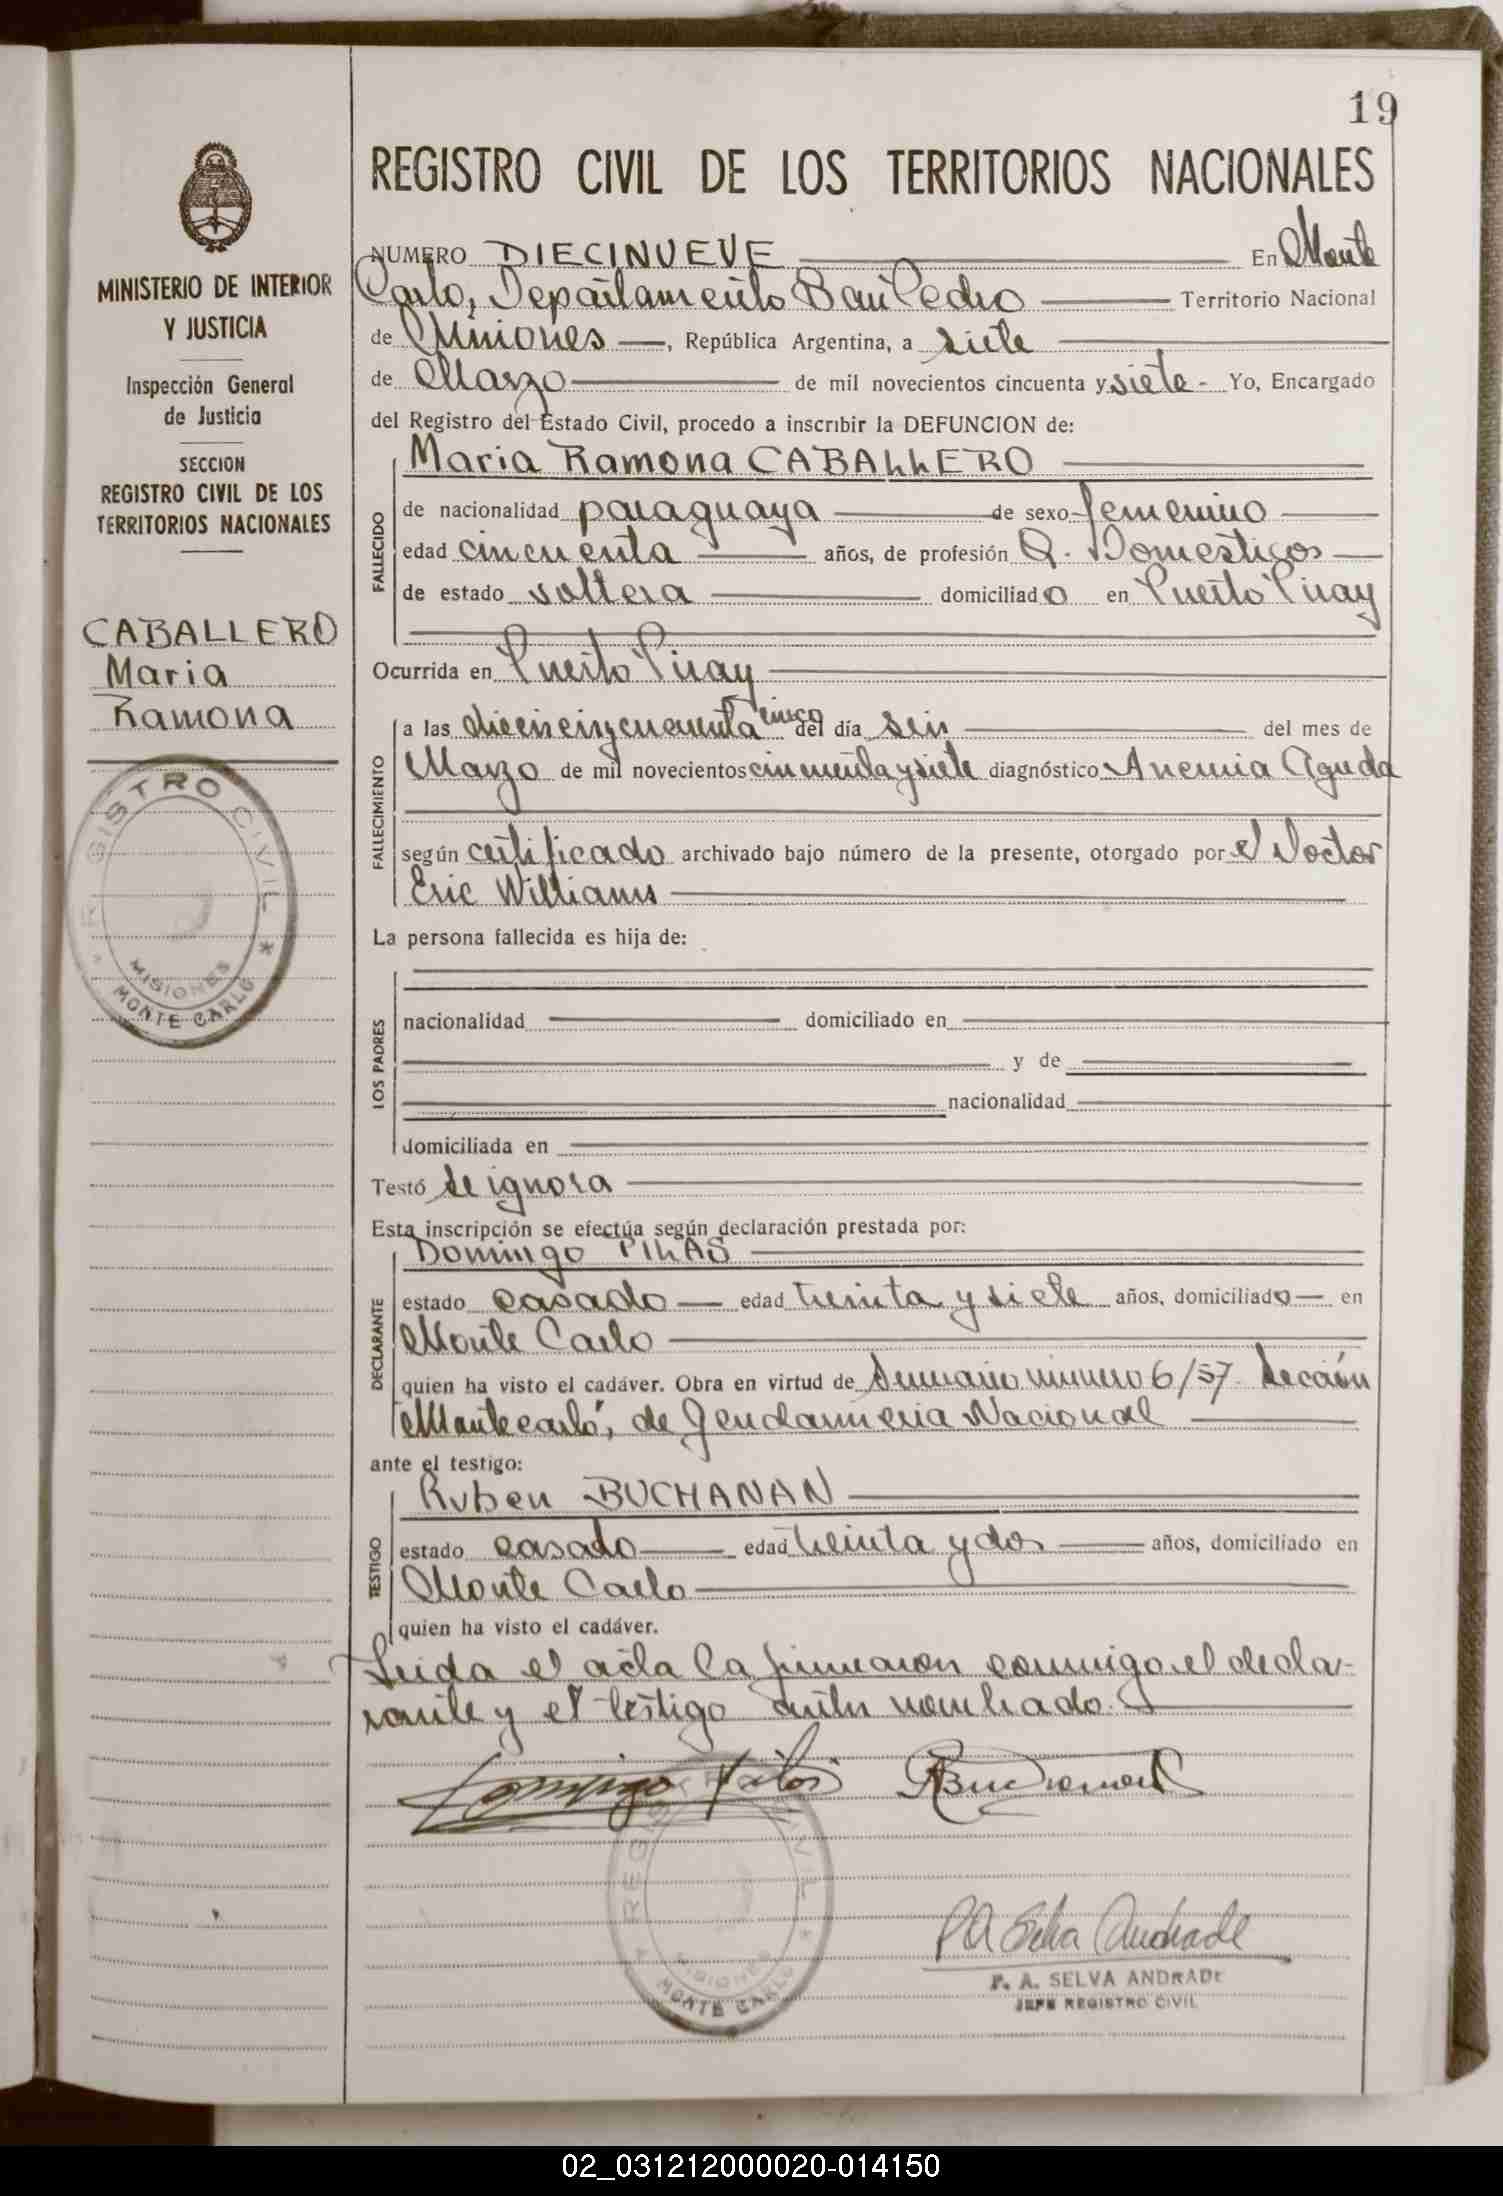 19
REGISTRO CIVIL DE LOS TERRITORIOS NACIONALES
MINISTERIO DE INTERIOR
Y JUSTICIA
Inspección General
de Justicia
SECCION
REGISTRO CIVIL DE LOS
TERRITORIOS NACIONALES
CABALLERO
Maria
Ramona
REGISTRO CIVIL
MISIONES
MONTE CARLO
NUMERO DIECINUEVE En Monte
Carlo, Departamento San Pedro Territorio Nacional
de Misiones, República Argentina, a siete
de Marzo de mil novecientos cincuenta y siete- Yo, Encargado
del Registro del Estado Civil, procedo a inscribir la DEFUNCION de:
Maria Ramona CABALLERO
FALLECIDO
de nacionalidad paraguaya de sexo femenino
edad cincuenta años, de profesión Q. Domesticos
de estado soltera domiciliado en Puerto Piray
Ocurrida en Puerto Piray
FALLECIMIENTO
a las cinco del día seis del mes de
Marzo de mil novecientos cincuenta y siete diagnóstico Anemia Aguda
según certificado archivado bajo número de la presente, otorgado por el Doctor
Eric Williams
La persona fallecida es hija de:
LOS PADRES
nacionalidad domiciliado en
y de
nacionalidad
domiciliada en
Testó se ignora
Esta inscripción se efectúa según declaración prestada por:
DECLARANTE
Domingo PILAS
estado casado edad treinta y siete años, domiciliado en
Monte Carlo
quien ha visto el cadáver. Obra en virtud de Sumario número 6/57 Sección
"Montecarlo", de Gendarmeria Nacional
ante el testigo:
TESTIGO
Ruben BUCHANAN
estado casado edad treinta y dos años, domiciliado en
Monte Carlo
quien ha visto el cadáver.
Leida el acta la firmaron conmigo el decla-
rante y el testigo antes nombrado.
REGISTRO CIVIL
MISIONES
MONTE CARLO
PA Selva Andrade
P. A. SELVA ANDRADE
JEFE REGISTRO CIVIL
02_031212000020-014150